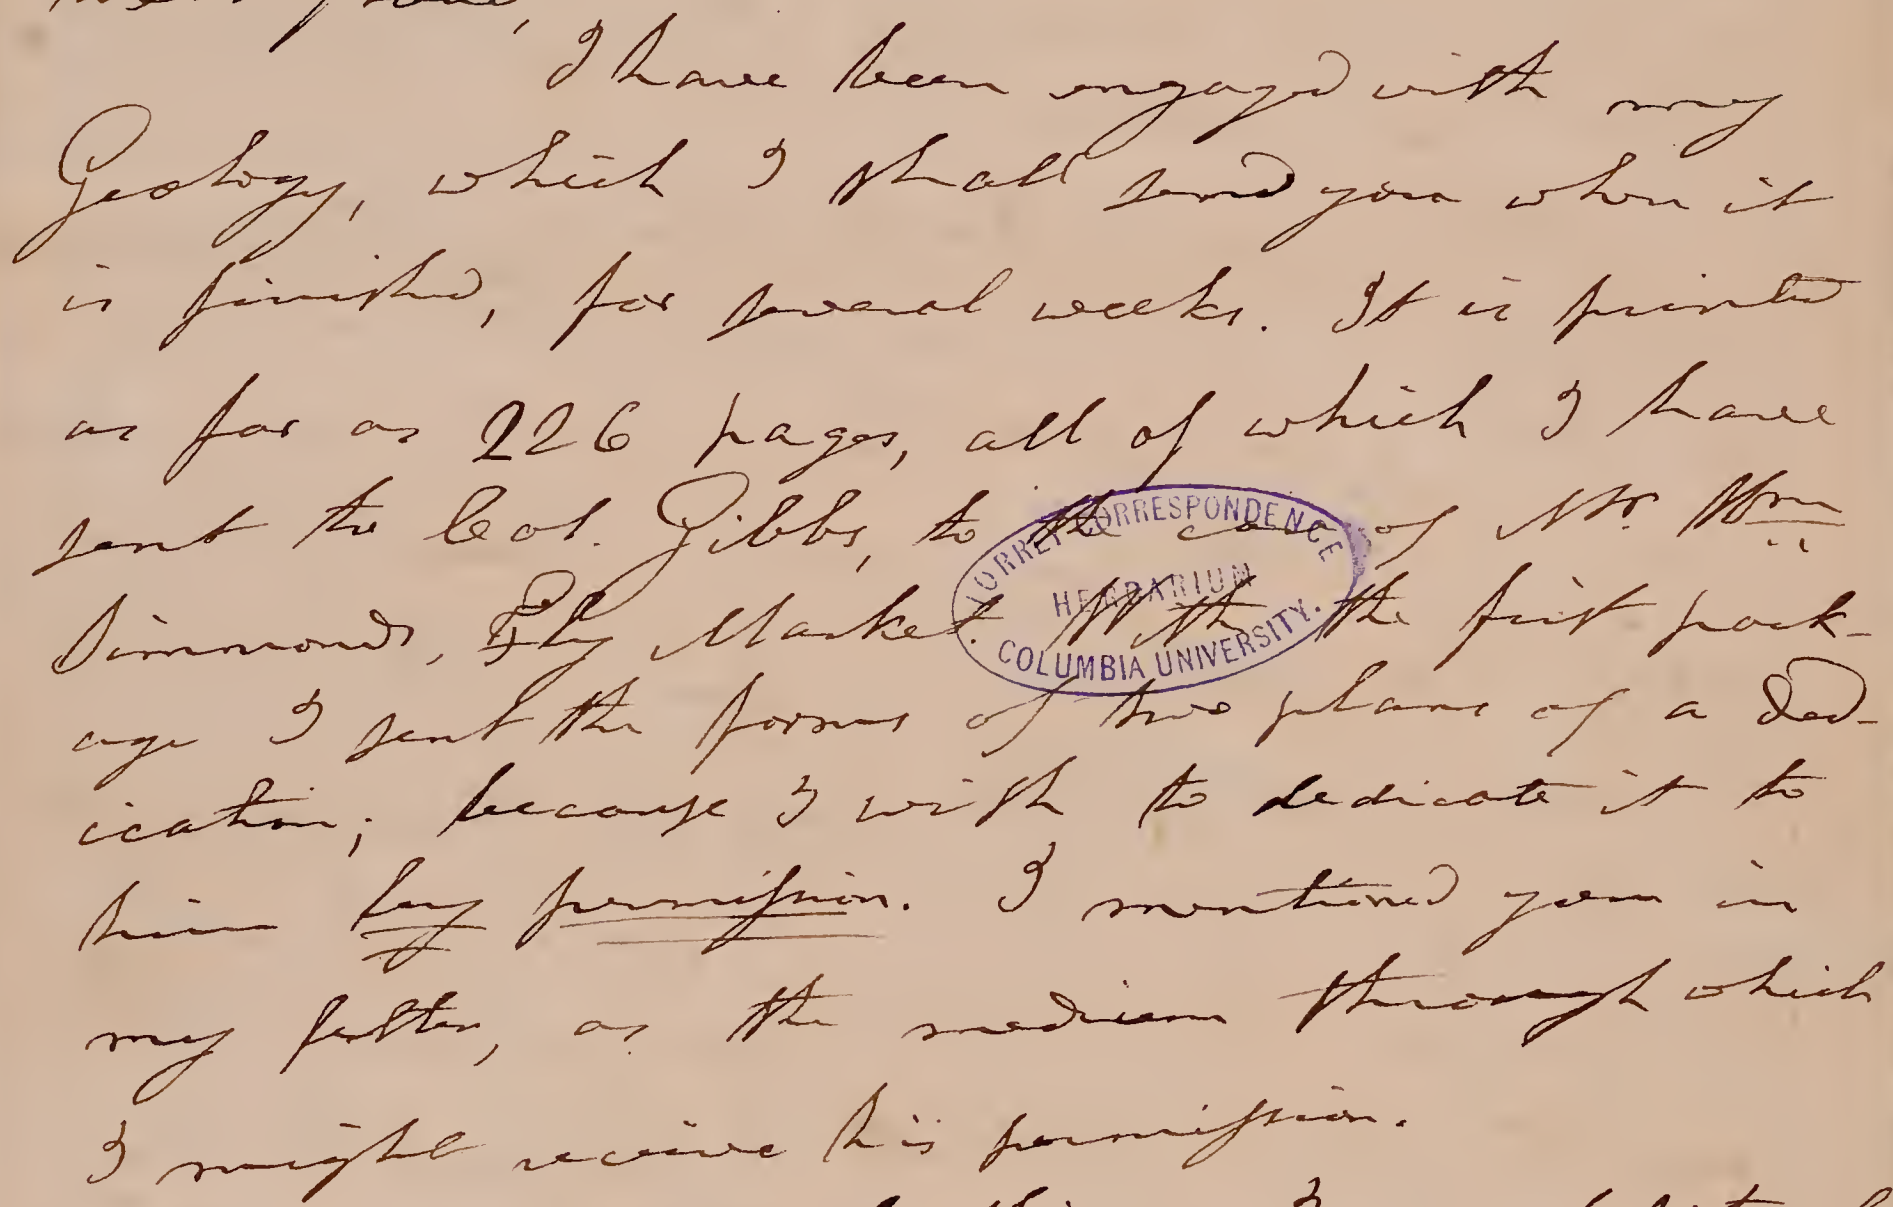 I have been engaged with my
Geology, which I shall send you when it
is finished, for several weeks. It is printed
as far as 226 pages, all of which I have
sent to Col. Gibbs, to the care of Mr. Wm
Simmonds, Fly Market. With the first pack-
age I sent the forms of two plans of a ded-
ication; because I wish to dedicate it to
him by permission. I mentioned you in
my letter, as the medium through which
I might receive his permission.
TORREY CORRESPONDENCE
HERBARIUM
COLUMBIA UNIVERSITY.